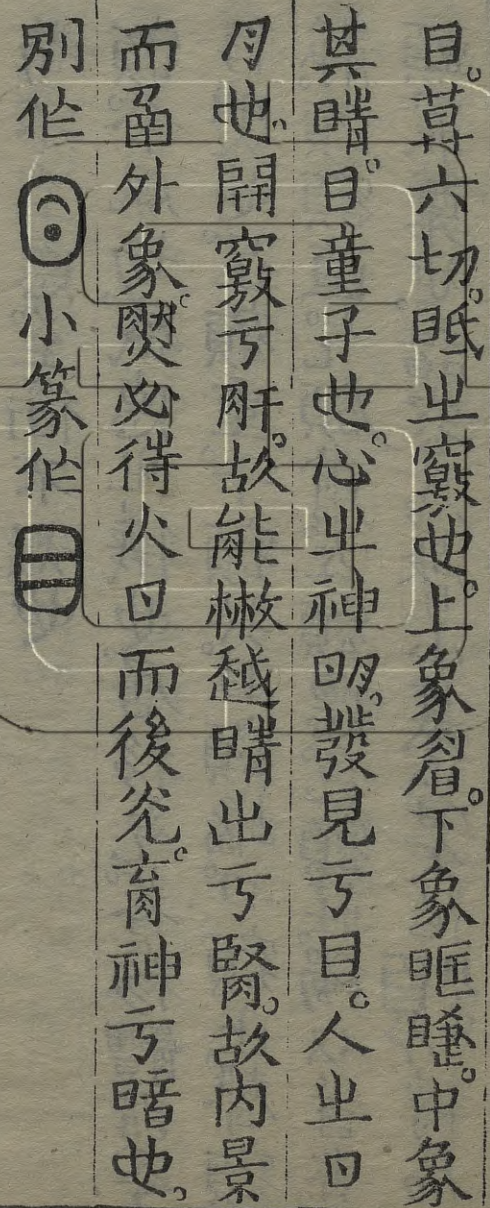 目。莫六切。眡㞢竅也。上象睂。下象眶睫。中象
其睛。目童子也。心㞢神明。發見亏目。人㞢日
月也。開竅亏肝。故能㪔越睛出亏腎。故内景
而外象。然必待火日而後灮。育神亏暗也。
別作 小篆作